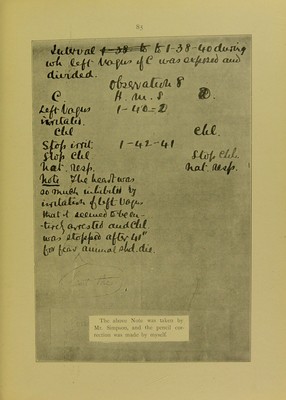 85
Interval 1-38 to 1-38-40 during
wh left Vagus of C was exposed and
divided.
Observation 8
C H. M. S D.
Left Vagus 1-40-2
irritated.
Chl Chl.
Stop irrit. 1-42-41
Stop Chl Stop Chl.
Nat. resp. Nat. resp.
Note The heart was
so much inhibited by
irritation of left Vagus
that it seemed to be en-
-tirely arrested and Chl
was stopped after 40"
for fear animal shd. die
The above Note was taken by
Mr. Simpson, and the pencil cor-
rection was made by myself.